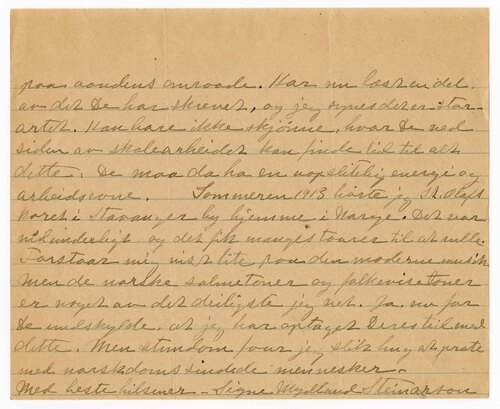 paa aandens omraade. Har nu læst en del
av det De har skrevet, og jeg synes det er stor-
artet. Kan bare ikke skjønne, hvor De ved
siden av skolearbeidet kan finde tid til alt
dette. De maa da ha en uopslitelig energi og
arbeidsevne. Sommeren 1913 hørte jeg St. Olafs
koret i Stavanger by hjemme i Norge. Det var
vidunderligt og det fik manges taarer til at rulle.
Forstaar mig nist lite paa den moderne musik
Men de norske salmetoner og folkevisetoner
er noget av det deiligste jeg vet. Ja, nu faar
De undskylde, at jeg har optaget Deres tid med
dette. Men stundom faar jeg slik hug at prate
med norskdomssindede mennesker.
Med beste hilsener - Signe Mydland Steinarson